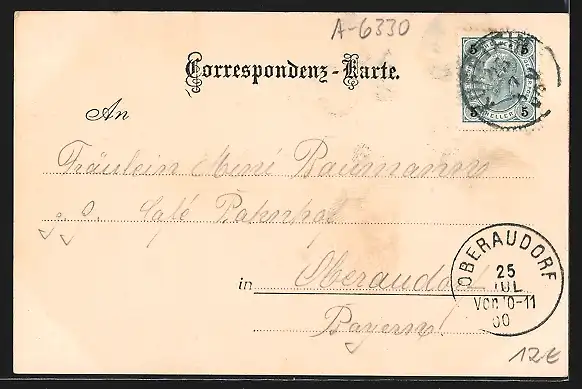 A-6330
5 5
HELLER
5 5
Correspondenz-Karte.
An
Fräulein Mini Baumann
Café Bahnhof
in Oberaudorf
Bayern
OBERAUDORF
25
JUL
Vor. 10-11
00
12€